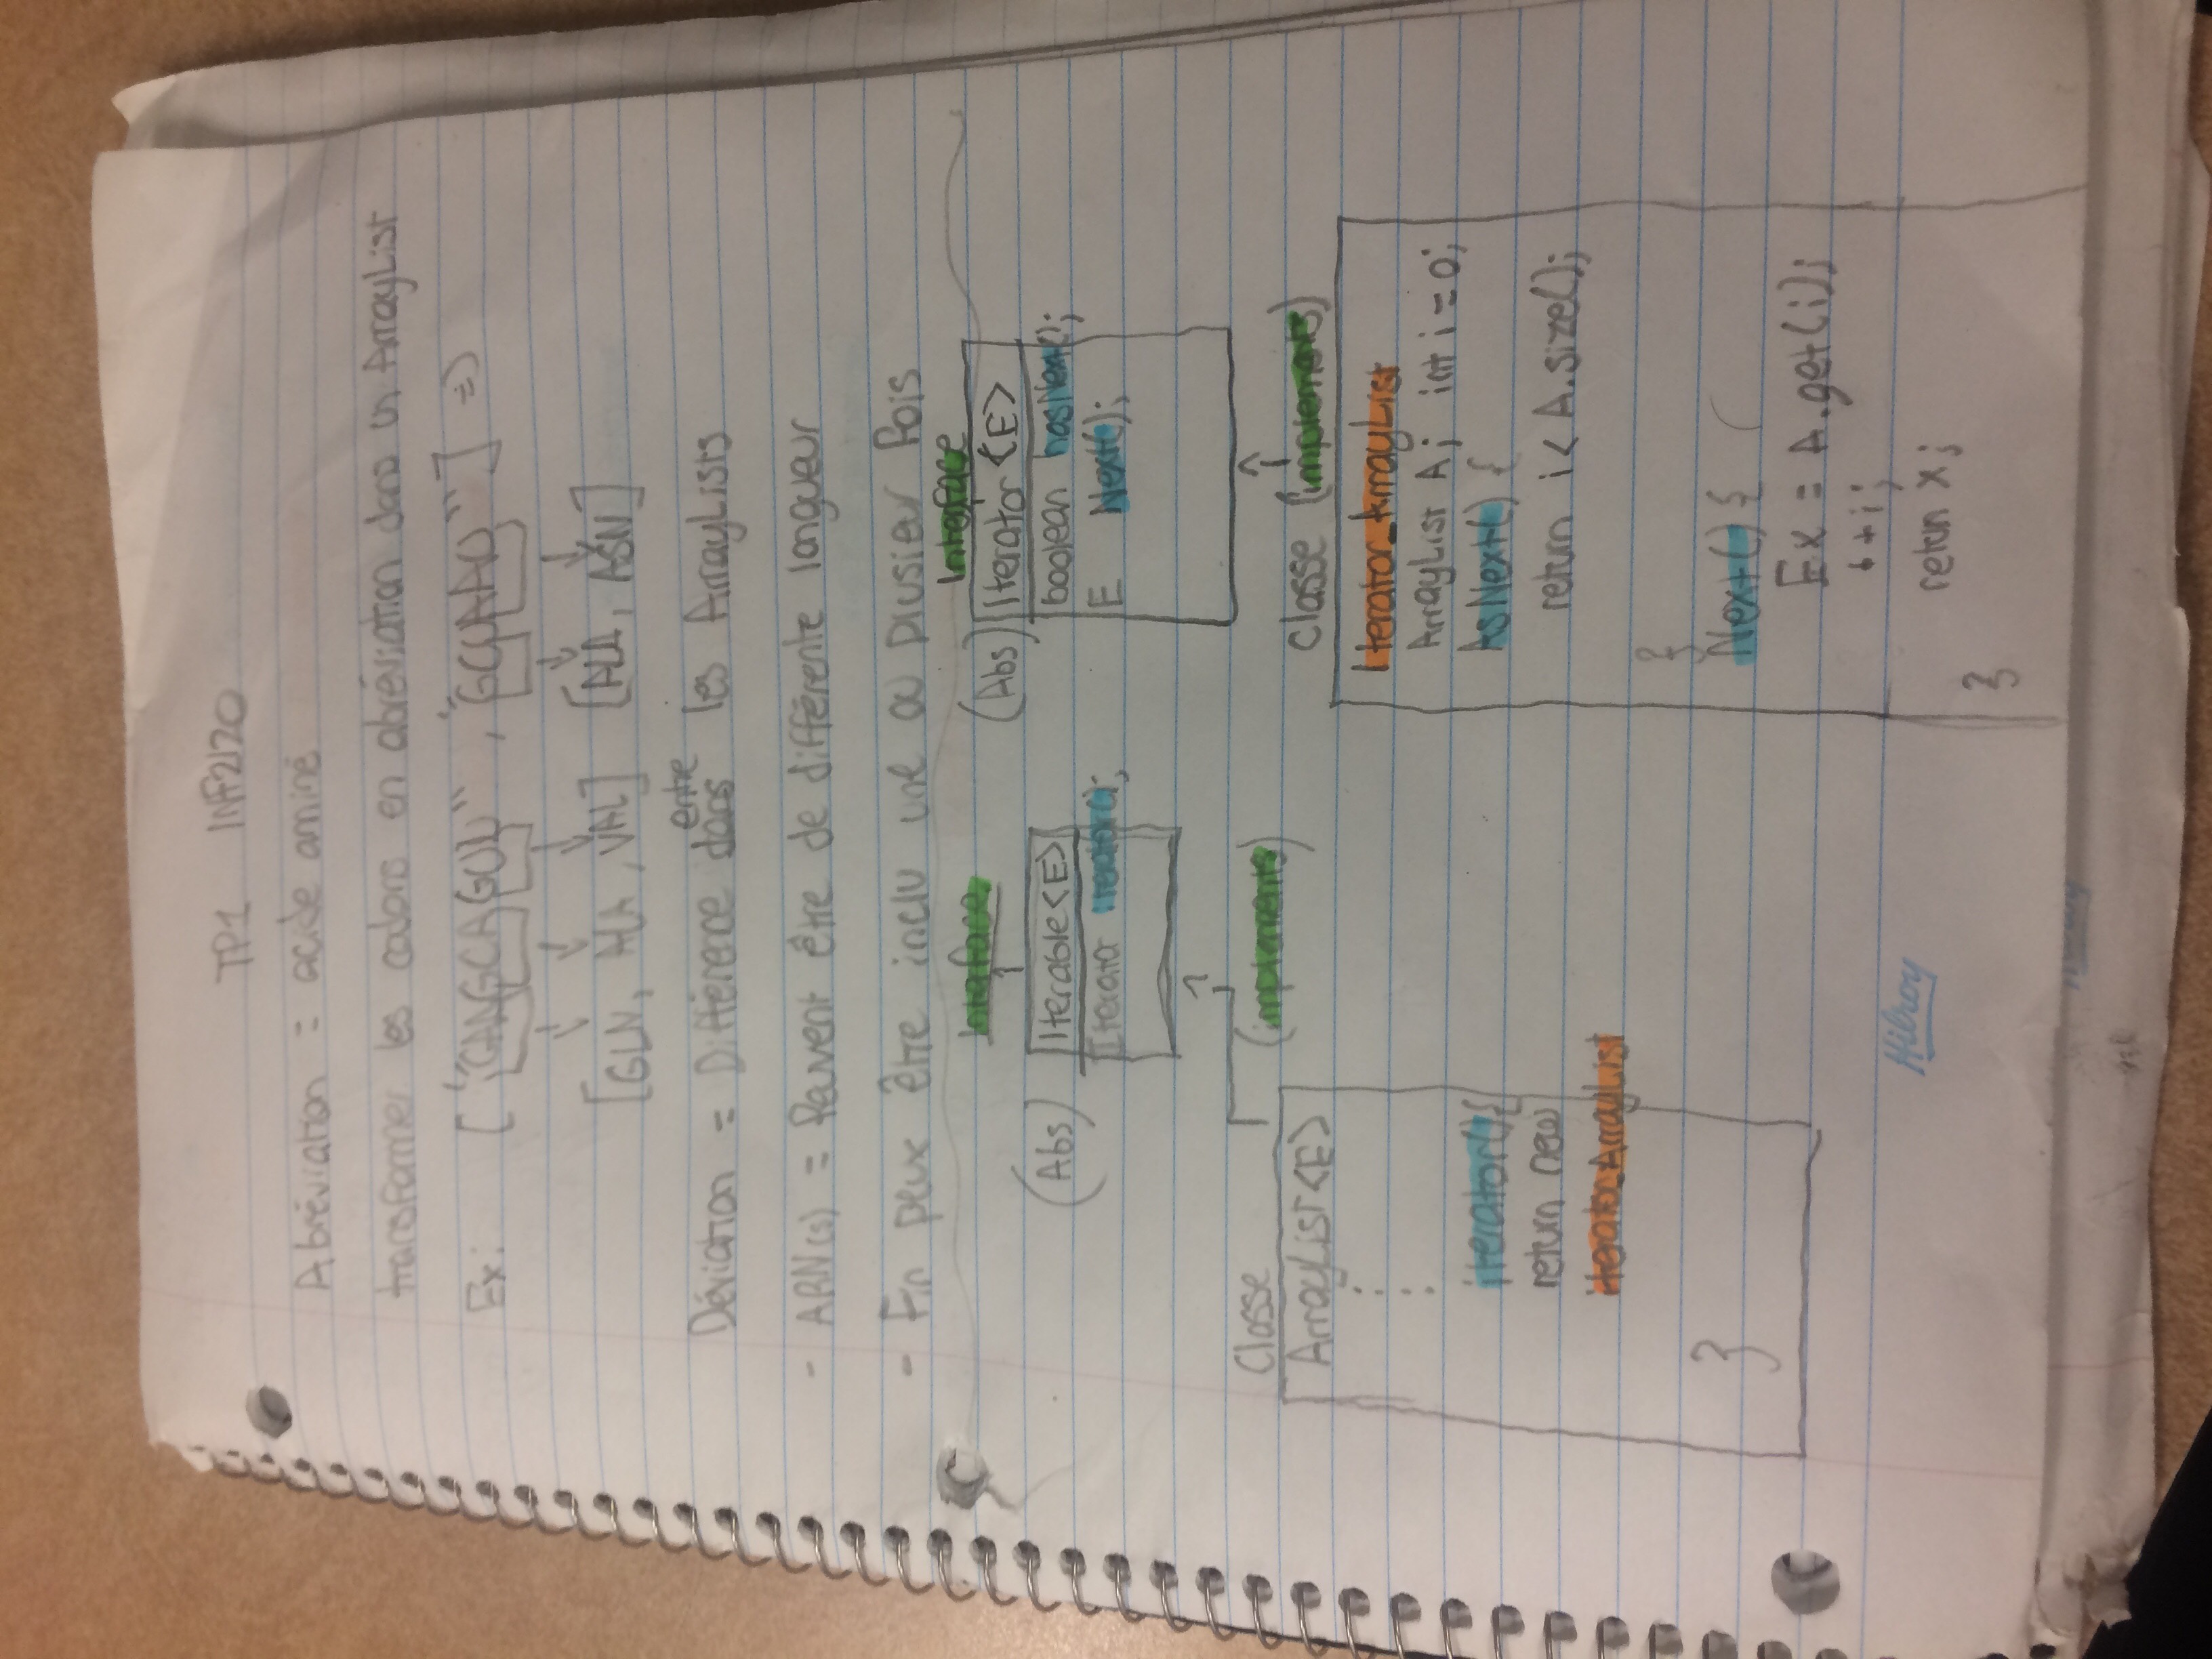 TP1 INF2120
Abréviation = acide aminé
transformer les codons en abréviation dans un ArrayList
Ex: ["CAAGCAGUU", "GCUAAU"] =>
[GLN, ALA, VAL] [ALA, ASN]
entre
Déviation = Différence dans les ArrayLists
- ARN(s) = Peuvent être de différente longueur
- Fin peux être inclu une ou plusieur fois
Interface
(Abs) Iterable<E>
Iterator iterator();
Interface
(Abs) Iterator<E>
boolean hasNext();
E Next();
Classe (implements)
ArrayList<E>
iterator(){
return new
iterator_ArrayList
}
Classe (implements)
Iterator_ArrayList
ArrayList A; int i = 0;
AsNext() {
return i < A.size();
}
Next() {
E x = A.get(i);
++i;
retun x;
}
Hilroy